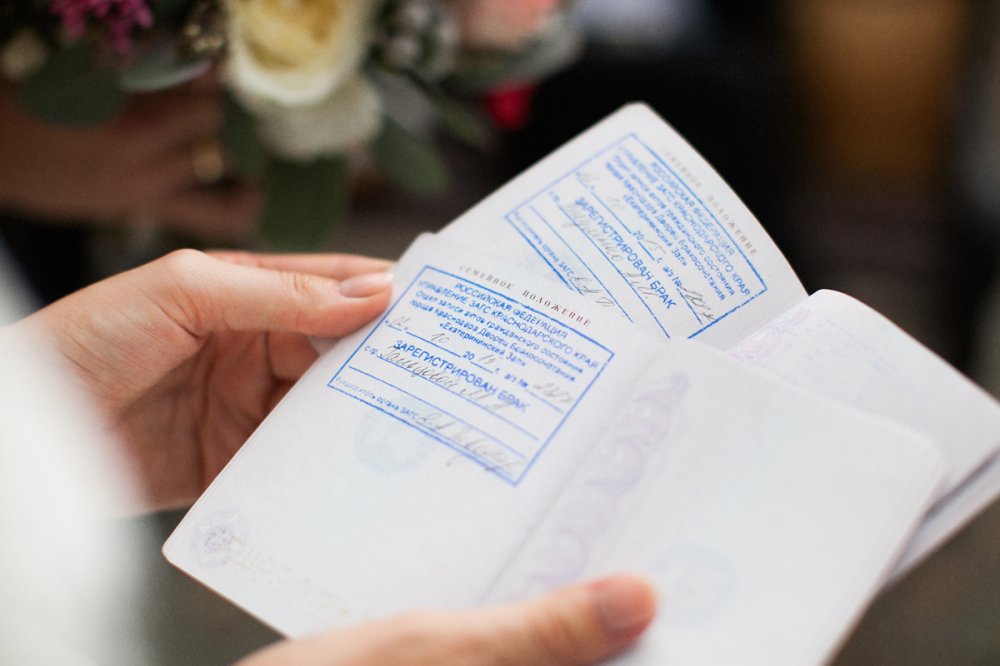 СЕМЕЙНОЕ ПОЛОЖЕНИЕ
РОССИЙСКАЯ ФЕДЕРАЦИЯ
УПРАВЛЕНИЕ ЗАГС КРАСНОДАРСКОГО КРАЯ
Отдел записи актов гражданского состояния
города Краснодара Дворец Бракосочетания
«Екатерининский Зал»
10 20 г., а/з №
ЗАРЕГИСТРИРОВАН БРАК
с гр.
Руководитель органа ЗАГС
СЕМЕЙНОЕ ПОЛОЖЕНИЕ
РОССИЙСКАЯ ФЕДЕРАЦИЯ
УПРАВЛЕНИЕ ЗАГС КРАСНОДАРСКОГО КРАЯ
Отдел записи актов гражданского состояния
города Краснодара Дворец Бракосочетания
«Екатерининский Зал»
10 20 г., а/з №
ЗАРЕГИСТРИРОВАН БРАК
с гр.
Руководитель органа ЗАГС